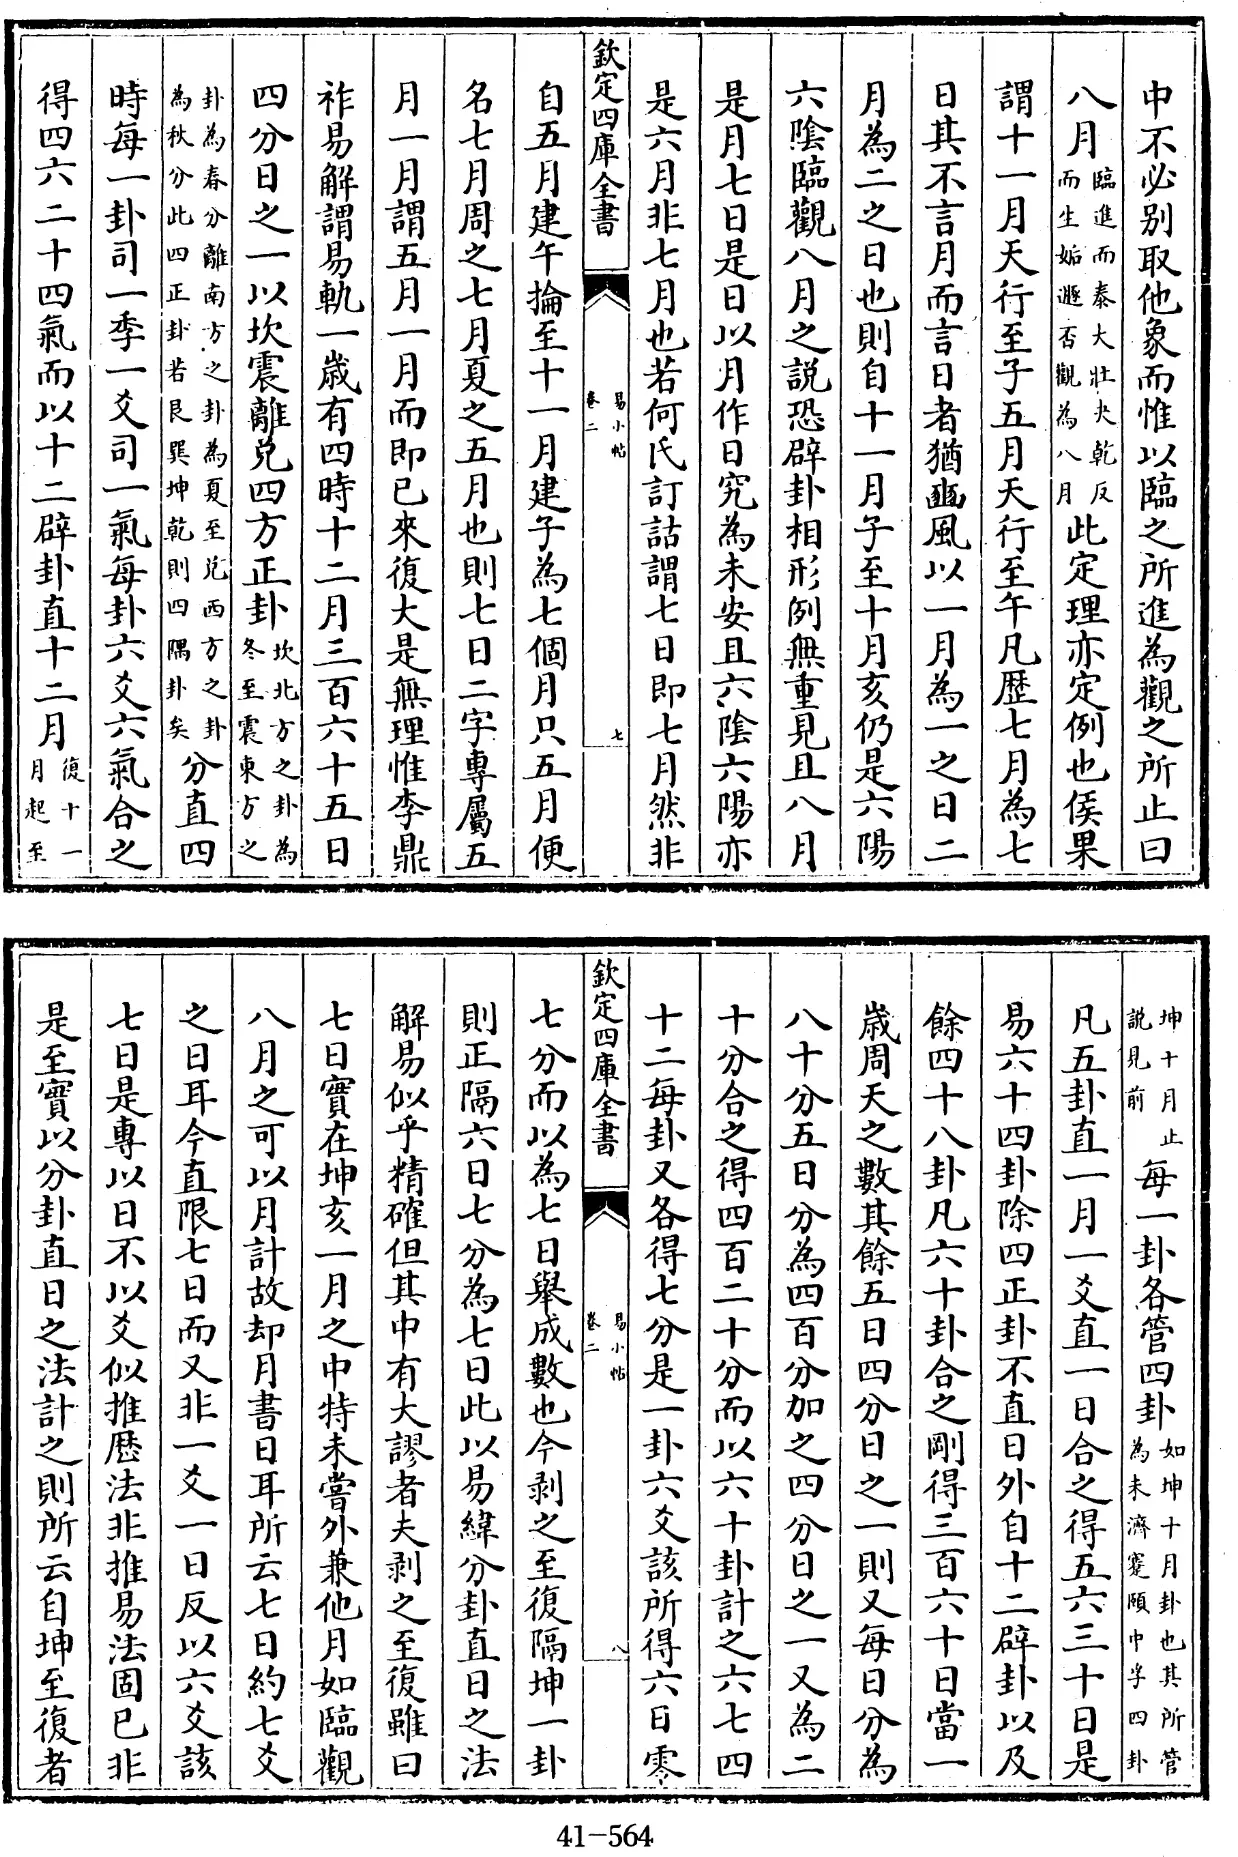 中不必别取他象而惟以臨之所進為觀之所止曰
八月臨進而泰大壯夬乾反而生姤遯否觀為八月此定理亦定例也侯果
謂十一月天行至子五月天行至午凡歴七月為七
日其不言月而言日者猶豳風以一月為一之日二
月為二之日也則自十一月子至十月亥仍是六陽
六隂臨觀八月之説恐辟卦相形例無重見且八月
是月七日是日以月作日究為未安且六隂六陽亦
是六月非七月也若何氏訂詁謂七日即七月然非
欽定四庫全書
易小帖
卷二
七
自五月建午掄至十一月建子為七個月只五月便
名七月周之七月夏之五月也則七日二字專屬五
月一月謂五月一月而即已來復大是無理惟李鼎
祚易解謂易軌一歳有四時十二月三百六十五日
四分日之一以坎震離兌四方正卦坎北方之卦為冬至震東方之
卦為春分離南方之卦為夏至兌西方之卦為秋分此四正卦若艮巽坤乾則四隅卦矣分直四
時每一卦司一季一爻司一氣每卦六爻六氣合之
得四六二十四氣而以十二辟卦直十二月復十一月起至
坤十月止説見前每一卦各管四卦如坤十月卦也其所管為未濟蹇頤中孚四卦
凡五卦直一月一爻直一日合之得五六三十日是
易六十四卦除四正卦不直日外自十二辟卦以及
餘四十八卦凡六十卦合之剛得三百六十日當一
歳周天之數其餘五日四分日之一則又每日分為
八十分五日分為四百分加之四分日之一又為二
十分合之得四百二十分而以六十卦計之六七四
十二每卦又各得七分是一卦六爻該所得六日零
欽定四庫全書
易小帖
卷二
八
七分而以為七日舉成數也今剥之至復隔坤一卦
則正隔六日七分為七日此以易緯分卦直日之法
解易似乎精確但其中有大謬者夫剥之至復雖曰
七日實在坤亥一月之中特未嘗外兼他月如臨觀
八月之可以月計故却月書日耳所云七日約七爻
之日耳今直限七日而又非一爻一日反以六爻該
七日是專以日不以爻似推歴法非推易法固已非
是至實以分卦直日之法計之則所云自坤至復者
41-564